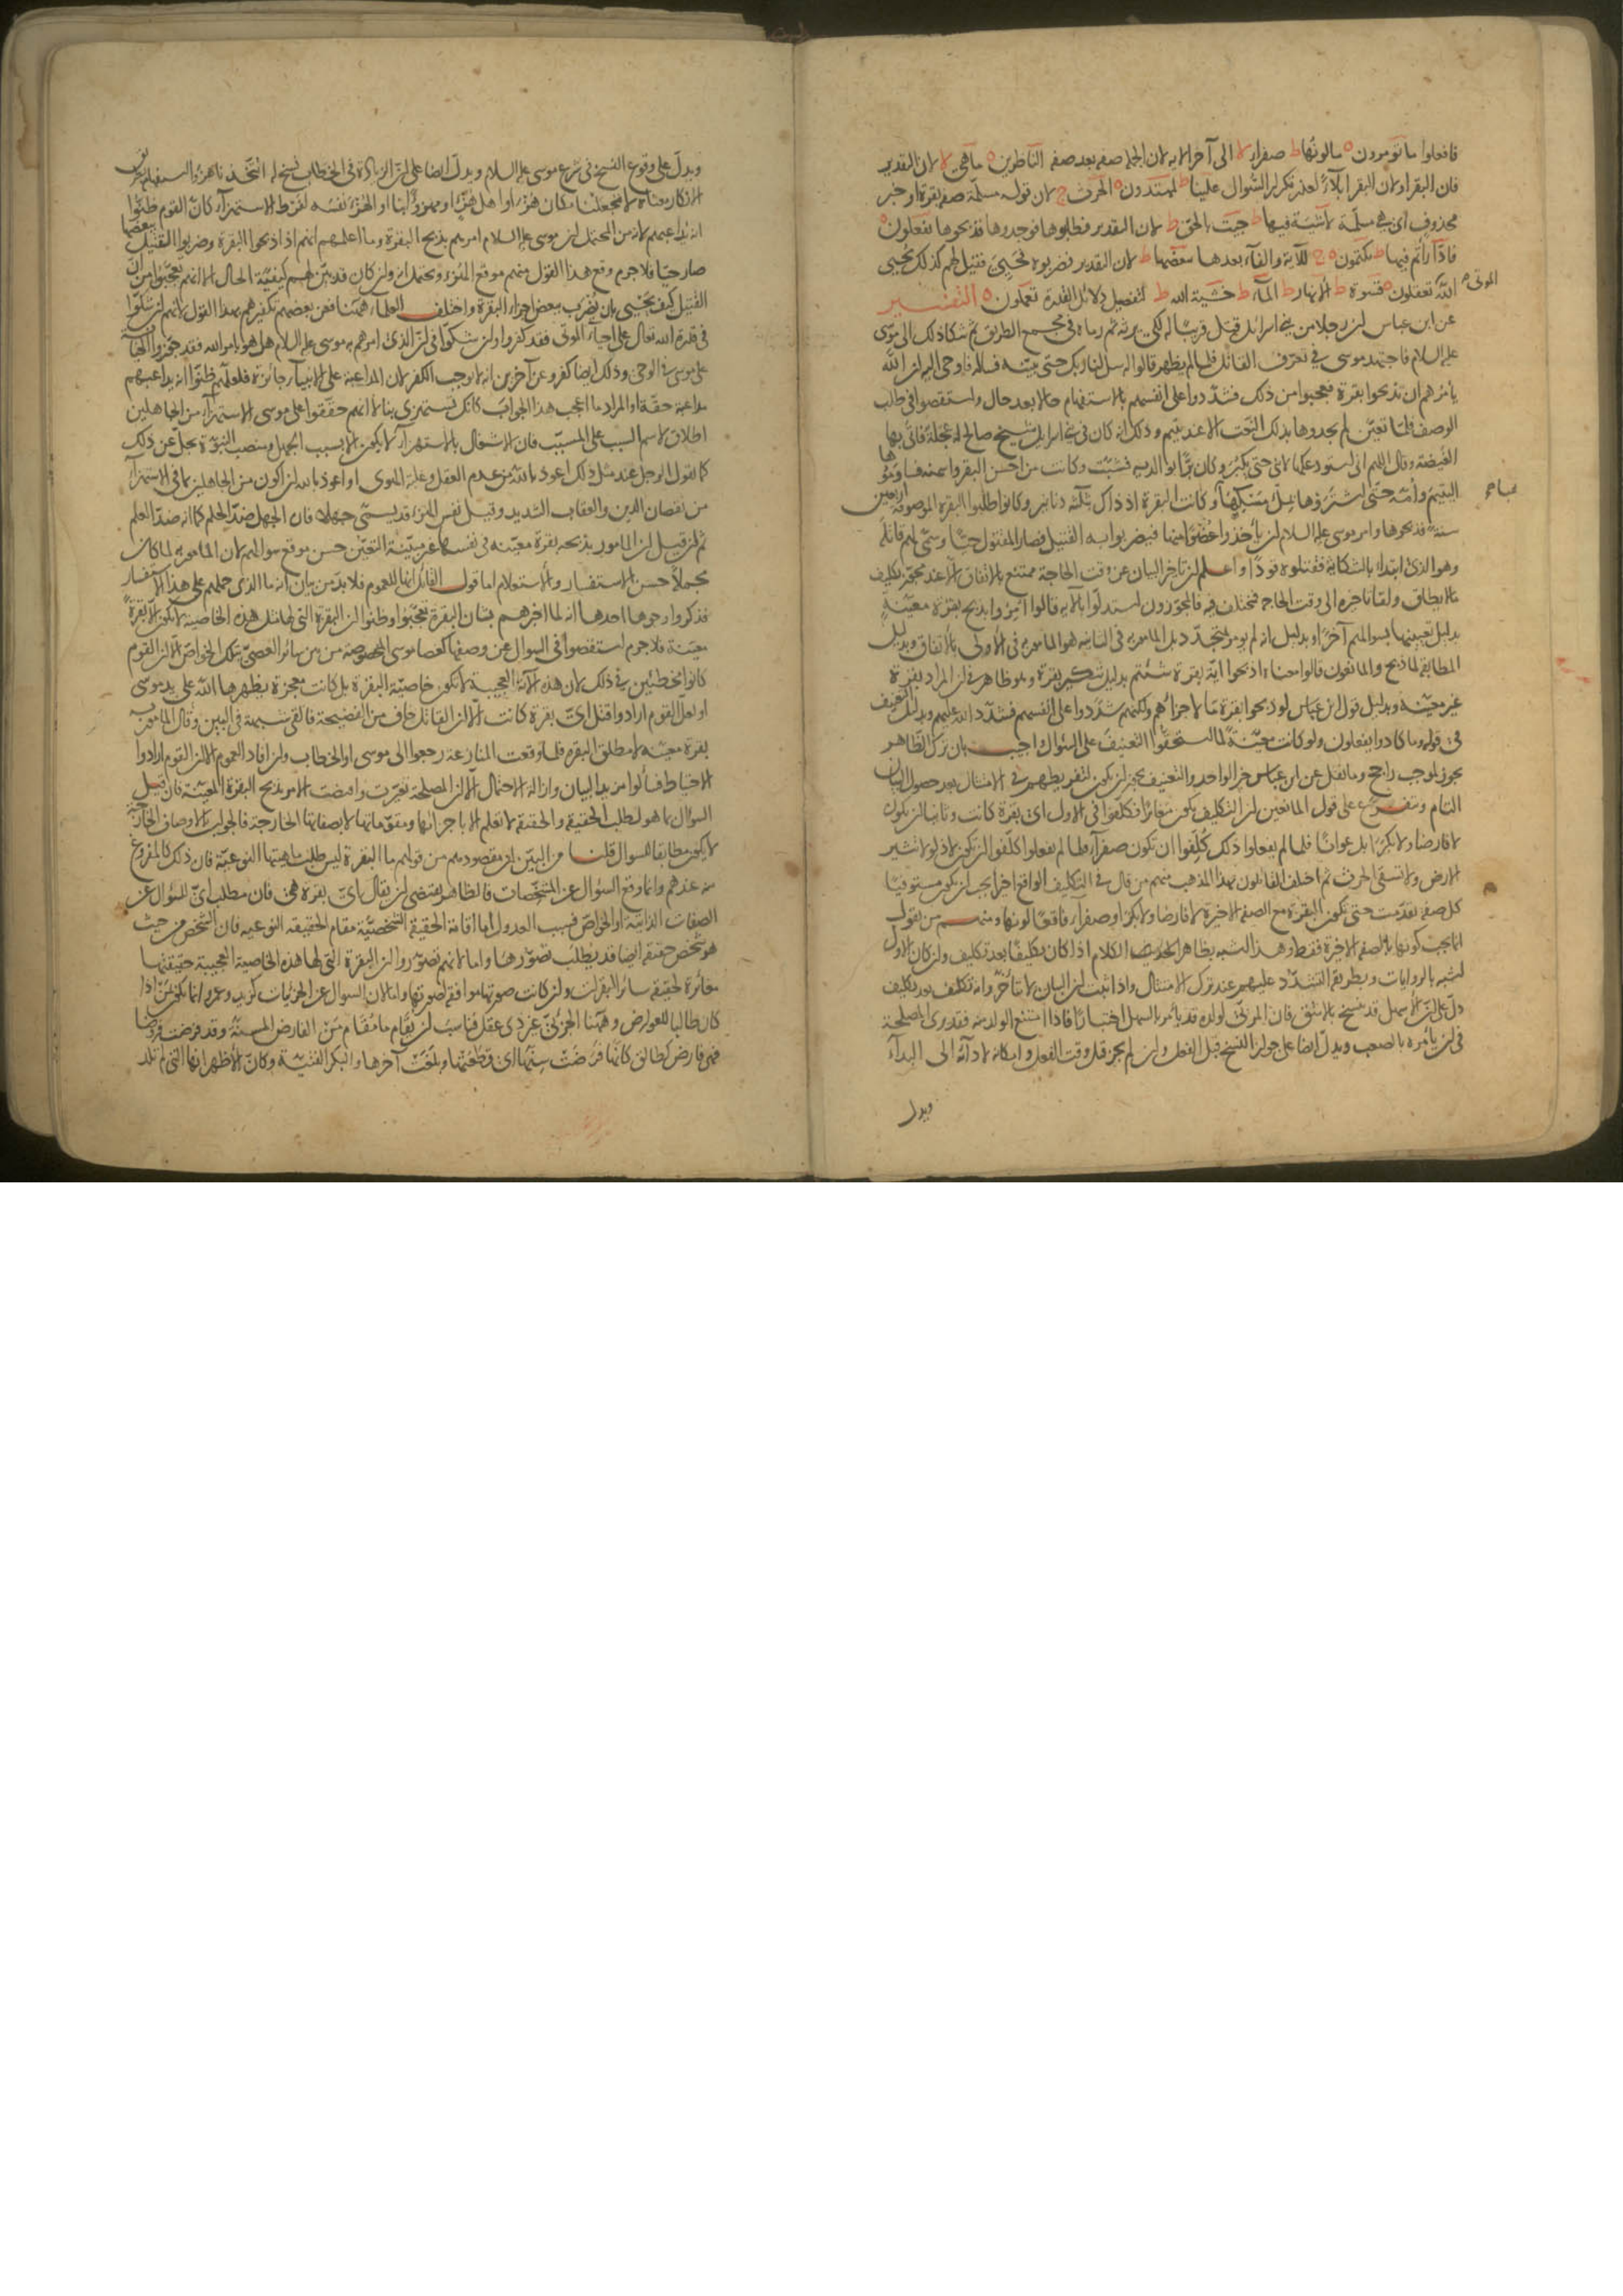 فافعلوا ما تؤمرون ه ما لونها ط صفراء لا الى آخر الآية لان الجملة صفة بعد صفة الناظرين ه ما هى لا لان التقدير
فان البقر او لان البقر ابلاء لعذر تكرار السؤال علينا ط لمهتدون ه الحرث ج لان قوله مسلمة صفة بقرة او خبر
محذوف اى هى مسلمة لا شية فيها ط جئت بالحق ط لان التقدير فطلبوها فوجدوها فذبحوها يفعلون ه
فادارأتم فيها ط تكتمون ه ج للآية والفاء بعدها ببعضها ط لان التقدير فضربوه فحيى فقيل لهم كذلك يحيى
الله الموتى تعقلون ه قسوة ط الانهار ط الماء ط خشية الله ط لتفصيل دلائل القدرة تعملون ه التفسير
عن ابن عباس ان رجلا من بنى اسرائل قتل قريبا له لكى يرثه ثم رماه فى مجمع الطريق ثم شكا ذلك الى موسى
عليه السلام فاجتهد موسى فى تعرف القاتل فلما لم يظهر قالوا له سل لنا ربك حتى يبينه فسأله فاوحى اليه ان الله
يأمركم ان تذبحوا بقرة فتعجبوا من ذلك فشددوا على انفسهم بالاستفهام حالا بعد حال واستقصوا فى طلب
الوصف فلما تعين لم يجدوها بذلك النعت الا عند يتيم وذلك انه كان فى بنى اسرائل شيخ صالح له عجلة فاتى بها
الغيضة وقال اللهم انى استودعكها لابنى حتى يكبر وكان برا بوالديه فشبت وكانت من احسن البقر واسمنه فساوموها
اليتيم وامه حتى اشتروها بملء مسكها وكانت البقرة اذ ذاك بثلثة دنانير وكانوا طلبوا البقرة الموصوفة اربعين
سنة فذبحوها وامر موسى عليه السلام ان يأخذوا عضوا منها فيضربوا به القتيل فصار المقتول حيا وسمى لهم قاتله
وهو الذى ابتدا بالشكاية فقتلوه قودا واعلم ان تاخير البيان عن وقت الحاجة ممتنع بالاتفاق الا عند مجوز تكليف
ما لا يطاق واما تاخيره الى وقت الحاجة فمختلف فيه فالمجوزون استدلوا بالآية قالوا امروا بذبح بقرة معينة
بدليل تعيينها بسوالهم آخرا وبدليل انه لم يؤمر بمتجدد بل المامور به فى الثانية هو المامور به فى الاولى بالاتفاق وبدليل
المطابقة لما ذبح والمانعون قالوا معناه اذبحوا اية بقرة شئتم بدليل تنكير بقرة وهو ظاهر فى ان المراد بقرة
غير معينة وبدليل قول ابن عباس لو ذبحوا بقرة ما لاجزأتهم ولكنهم شددوا على انفسهم فشدد الله عليهم وبدليل التعنيف
فى قوله وما كادوا يفعلون ولو كانت معينة لما استحقوا التعنيف على السؤال اجيب بان ترك الظاهر
يجوز لموجب راجح وما نقل عن ابن عباس خبر الواحد والتعنيف يجوز ان يكون لتفريطهم فى الامتثال بعد حصول البيان
التام وتفرع على قول المانعين ان التكليف يكون متغايرا فكلفوا فى الاول اى بقرة كانت وثانيا ان يكون
لا فارضا ولا بكرا بل عوانا فلما لم يفعلوا ذلك كلفوا ان تكون صفراء فلما لم يفعلوا كلفوا ان تكون لا ذلولا تثير
الارض ولا تسقى الحرث ثم اختلف القائلون بهذا المذهب منهم من قال فى التكليف الواقع اخيرا يجب ان يكون مستوفيا
كل صفة تقدمت حتى تكون البقرة مع الصفة الاخيرة لا فارضا ولا بكرا وصفراء فاقعا لونها ومنهم من يقول
انما يجب كونها بالصفة الاخيرة فقط وهذا اشبه بظاهر الكلام اذا كان تكليفا بعد تكليف وان كان الاول
اشبه بالروايات وبطريقة التشدد عليهم عند ترك الامتثال واذا ثبت ان البيان لا يتأخر وانه تكليف بعد تكليف
دل على ان الاسهل قد ينسخ بالاشق فان المربى لولده قد يأمره بالسهل اختبارا فاذا امتنع الولد منه فقد يرى المصلحة
فى ان يأمره بالصعب ويدل ايضا على جواز النسخ قبل الفعل وان لم يجز قبل وقت الفعل وامكانه لادائه الى البداء
ويدل
ويدل على وقوع النسخ فى شرع موسى عليه السلام ويدل ايضا على ان الزيادة فى الخطاب نسخ له اتتخذنا هزوا استفهام بمعنى
الانكار معناه لا تجعلنا مكان هزء او اهل هزء او مهزوا بنا او الهزء نفسه لفرط الاستهزاء كان القوم ظنوا
انه يداعبهم لانه من المحتمل ان موسى عليه السلام امرهم بذبح البقرة وما اعلمهم انهم اذا ذبحوا البقرة وضربوا القتيل ببعضها
صار حيا فلا جرم وقع هذا القول منهم موقع الهزء ويحتمل انه وان كان قد بين لهم كيفية الحال الا انهم تعجبوا من ان
القتيل كيف يحيى بان يضرب ببعض اجزاء البقرة واختلف العلماء ههنا فعن بعضهم تكفيرهم بهذا القول لانهم ان شكوا
فى قدرة الله تعالى على احياء الموتى فقد كفروا وان شكوا فى ان الذى امرهم به موسى عليه السلام هل هو بامر الله فقد جوزوا الخيانة
على موسى فى الوحى وذلك ايضا كفر وعن آخرين انه لا يوجب الكفر لان المداعبة على الانبياء جائزة فلعلهم ظنوا انه يداعبهم
مداعبة حقة او المراد ما اعجب هذا الجواب كانك تستهزئ بنا لا انهم حققوا على موسى الاستهزاء من الجاهلين
اطلاق لاسم السبب على المسبب فان الاشتغال بالاستهزاء لا يكون الا بسبب الجهل ومنصب النبوة يجل عن ذلك
كما يقول الرجل عند مثل ذلك اعوذ بالله من عدم العقل وغلبة الهوى او اعوذ بالله ان اكون من الجاهلين بما فى الاستهزاء
من نقصان الدين والعقاب الشديد وقيل نفس الهزء قد يسمى جهلا فان الجهل ضد الحلم كما انه ضد العلم
ثم ان قيل ان المامور بذبحه بقرة معينة فى نفسها غير مبينة التعين حسن موقع سوالهم لان المامور به لما كان
مجملا حسن الاستفسار والاستعلام اما قول القائل انها للعموم فلا بد من بيان انه ما الذى حملهم على هذا الاستفسار
فذكروا وجوها احدها انه لما اخبرهم بشان البقرة تعجبوا وظنوا ان البقرة التى لها مثل هذه الخاصية لا تكون الا بقرة
معينة فلا جرم استقصوا فى السوال عن وصفها كعصا موسى المخصوصة من بين سائر العصى بتلك الخواص الا ان القوم
كانوا مخطئين فى ذلك لان هذه الآية العجيبة لا تكون خاصية البقرة بل كانت معجزة يظهرها الله على يد موسى
او لعل القوم ارادوا قتل اى بقرة كانت الا ان القاتل خاف من الفضيحة فالقى شبهة فى البين وقال المامور به
بقرة معينة لا مطلق البقرة فلما وقعت المنازعة رجعوا الى موسى او الخطاب وان افاد العموم الا ان القوم ارادوا
الاحتياط فسألوا مزيد البيان وازالة الاحتمال الا ان المصلحة تغيرت واقتضت الامر بذبح البقرة المعينة فان قيل
السوال بما هو لطلب الحقيقة والحقيقة لا تعلم الا باجزائها ومقوماتها لا بصفاتها الخارجة فالجواب بالاوصاف الخارجة
لا يكون مطابقا للسوال قلنا من البين ان مقصودهم من قولهم ما البقرة ليس طلب ماهيتها النوعية فان ذلك كالمفروغ
منه عندهم وانما وقع السؤال عن المشخصات فالظاهر يقتضى ان يقال باى بقرة هى فان مطلب اى للسؤال عن
الصفات الذاتية او الخواص فسبب العدول اما اقامة الحقيقة الشخصية مقام الحقيقة النوعية فان الشخص من حيث
هو شخص حقيقة ايضا قد يطلب تصورها واما لانهم تصوروا ان البقرة التى لها هذه الخاصية العجيبة حقيقتها
مغائرة لحقيقة سائر البقرات وان كانت صورتها موافقة لصورتها واما لان السوال عن الجزئيات كزيد وعمرو انما يكون بمن اذا
كان طالبا للعوارض وههنا الجزئى غير ذى عقل فناسب ان يقام ما مقام من الفارض المسنة وقد فرضت فروضا
فهى فارض كطالق كانها فرضت سنها اى قطعتها وبلغت آخرها والبكر الفتية وكان الاظهر انها التى لم تلد